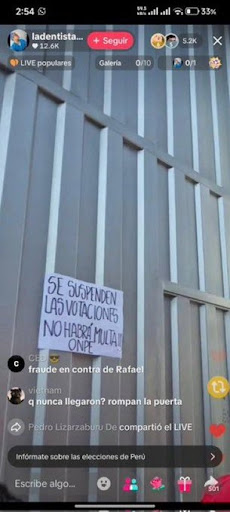 2:54
33%
ladentista...
12.6K
+ Seguir
5.2K
LIVE populares
Galería
0/10
0/1
SE SUSPENDEN
LAS VOTACIONES
NO HABRÁ MULTA!!!
ONPE
CEO 😎
fraude en contra de Rafael
vietnam
q nunca llegaron? rompan la puerta
Pedro Lizarzaburu De compartió el LIVE
Infórmate sobre las elecciones de Perú
Escribe algo...
501